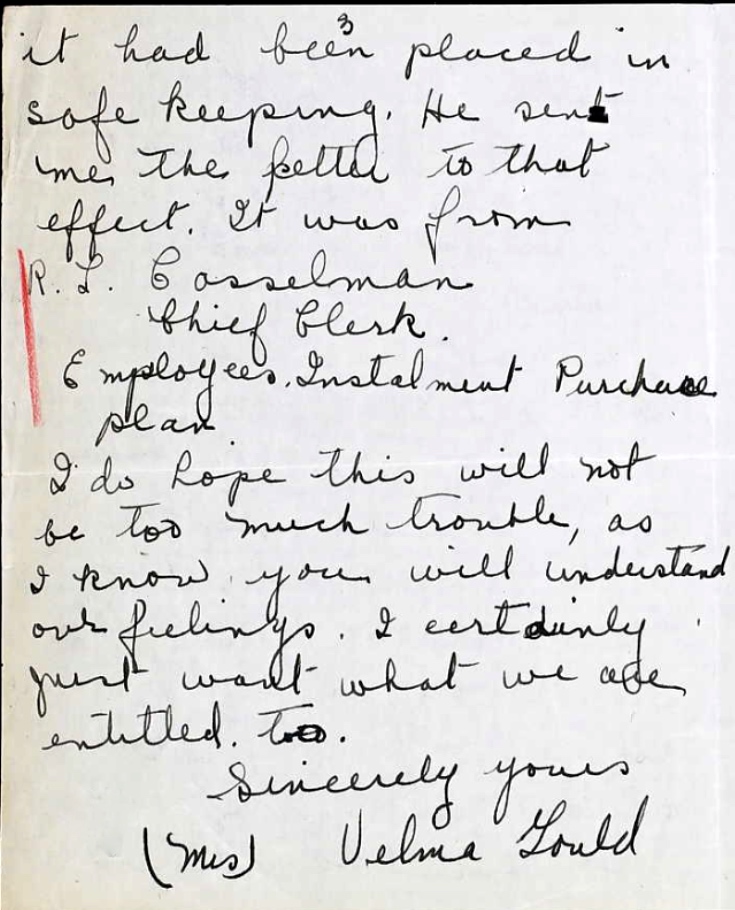 3
it had been placed in
safe keeping. He sent
me, the letter to that
effect. It was from
R. L. Casselman
Chief Clerk.
Employees. Instalment Purchase
plan
I do hope this will not
be too much trouble, as
I know you will understand
our feelings. I certainly
just want what we are
entitled. to.
Sincerely yours
(Mrs) Velma Gould